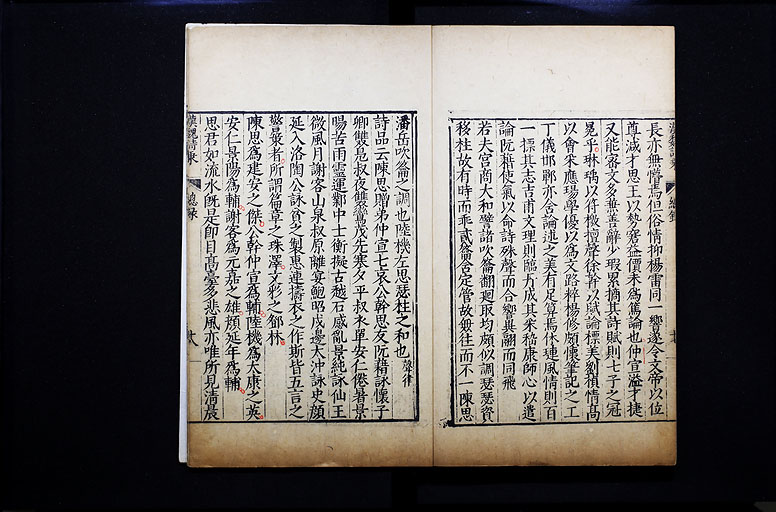 長亦無懵焉但俗情抑揚雷同一響遂令文帝以位
尊減才思王以勢窘益價未為篤論也仲宣溢才捷
又能密文多兼善辭少瑕累摘其詩賦則七子之冠
冕乎琳瑀以符檄擅聲徐幹以賦論標美劉楨情高
以會采應瑒學優以為文路粹楊修頗懷筆記之工
丁儀邯鄲亦含論述之美有足算焉休璉風情則百
一標其志吉甫文理則臨丹成其采嵇康師心以遣
論阮藉使氣以命詩殊聲而合響異翮而同飛
若夫宮商大和譬諸吹籥翻迴取均頗似調瑟瑟資
移柱故有時而乖貳籥含定管故無往而不一陳思
潘岳吹籥之調也陸機左思瑟柱之和也聲律
詩品云陳思贈弟仲宣七哀公幹思友阮藉詠懷子
卿雙鳧叔夜雙鸞茂先寒夕平叔衣單安仁倦暑景
陽苦雨靈運鄴中士衡擬古越石感亂景純詠仙王
微風月謝客山泉叔原離宴鮑昭戍邊太沖詠史顏
延入洛陶公詠貧之製惠連擣衣之作斯皆五言之
警最者所謂篇章之珠澤文彩之鄧林
陳思為建安之傑公幹仲宣為輔陸機為太康之英
安仁景陽為輔謝客為元嘉之雄顏延年為輔
思君如流水既是即目高臺多悲風亦唯所見清晨
總錄